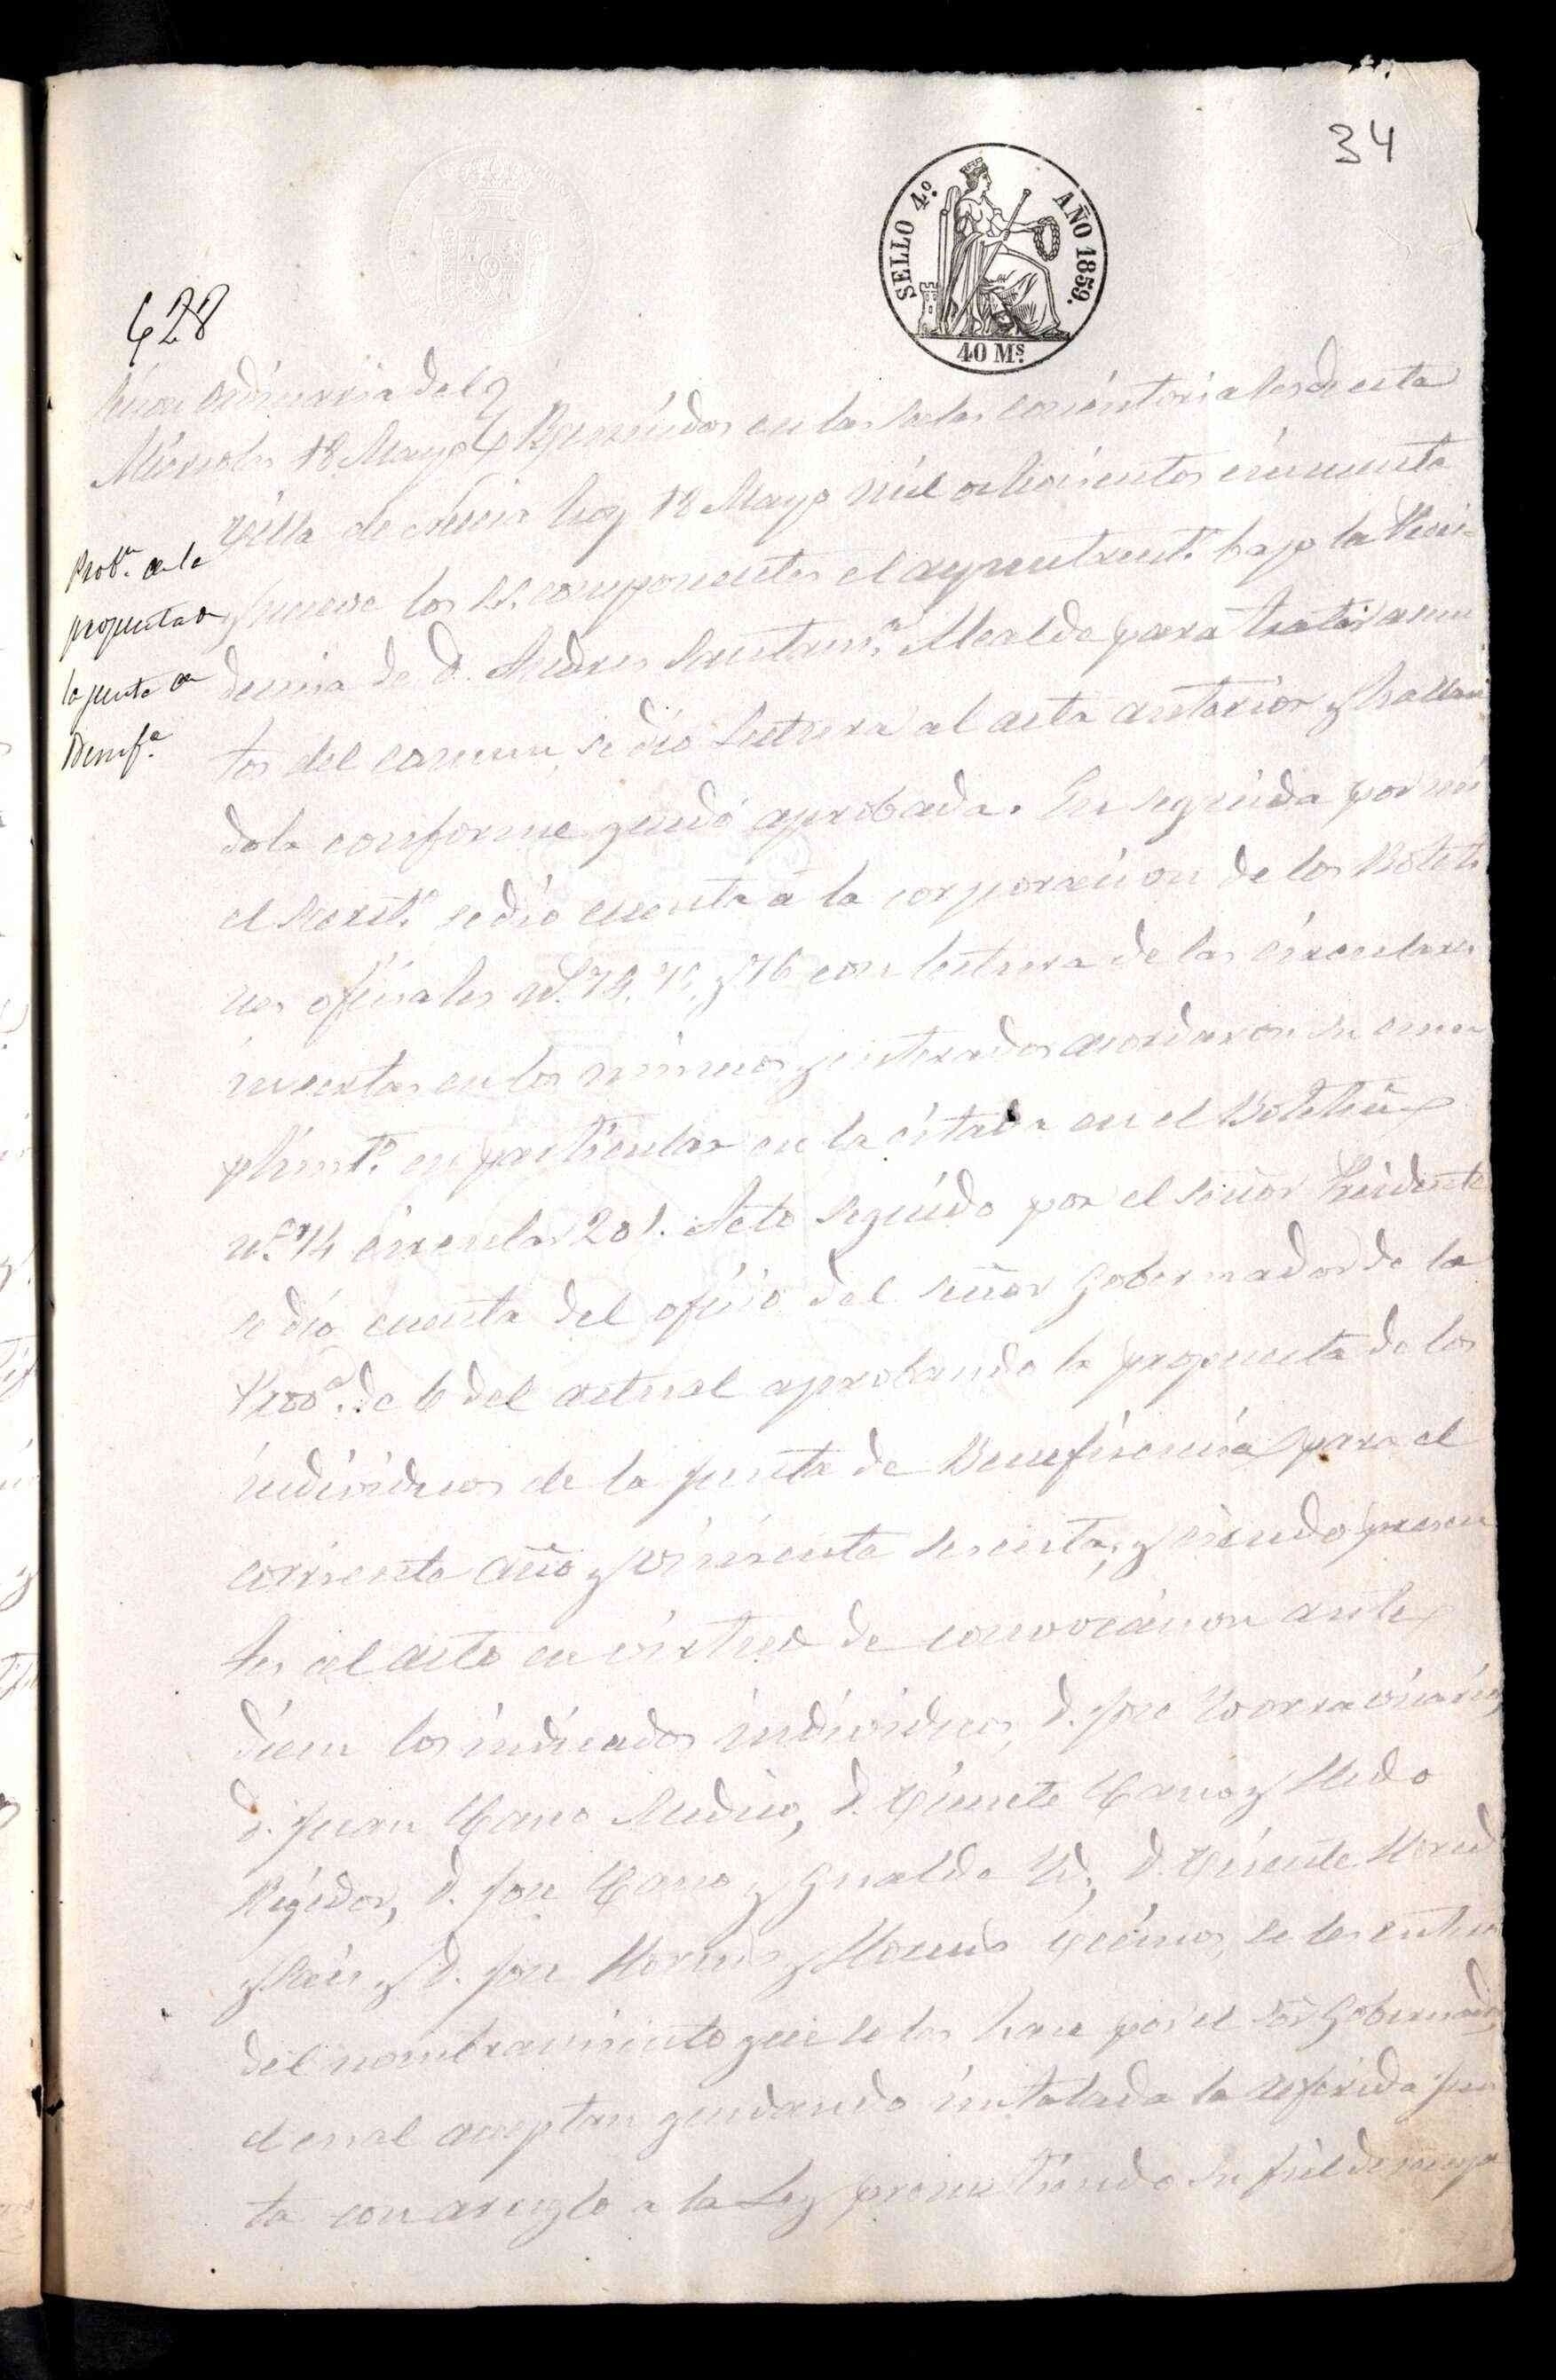 34
SELLO 4.º AÑO 1859.
40 Ms.
628
Sesion ordinaria del
Miércoles 18 Mayo Reunidos en las salas consistoriales de esta
Villa de hoy 18 Mayo mil ochocientos cincuenta
y nueve los SS. componentes el ayuntamt.º bajo la Presi-
dencia de D. Andres Alcalde para tratar asun
tos del comun, se dió lectura al acta anterior y hallan
dola conforme quedó aprobada. En seguida por mi
el Secret.º se dió cuenta a la corporacion de los Boleti
nes oficiales nº. 74, 75, y 76 con lectura de las circulares
insertas en los mismos y enterados acordaron su cum
plimt.º en particular en la citada en el Boletin
nº. 74 circular 201. Acto seguido por el señor Presidente
se dió cuenta del oficio del señor Gobernador de la
Prov.ª de 6 del actual aprobando la propuesta de los
individuos de la junta de Beneficencia para el
corriente año y viniente sesenta, y siendo presen
tes al acto en virtud de convocacion ante
diem los indicados individuos, D. Jose
D. Juan Cano Medico, D. Vicente Cano y
Regidor, D. Jose Cano y Gualde id., D. Vicente
y D. Jose y Vecinos, se les entera
del nombramiento que se les hace por el Sōr Gobernador
el cual aceptan quedando instalada la referida jun
ta con arreglo a la Ley prometiendo su fiel desempe
Prob.n de la
propuesta de
la junta de
Benef.ª